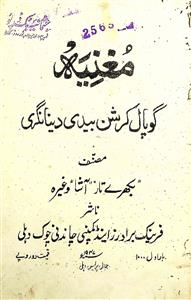 2563
مغنیہ
گوپال کرشن بیدی دینانگری
مصنف
بکھرے تار" آشا" وغیرہ
ناشر
فرینک برادرز اینڈ کمپنی چاندنی چوک دہلی
بار اول ۱۰۰۰
قیمت دو روپے